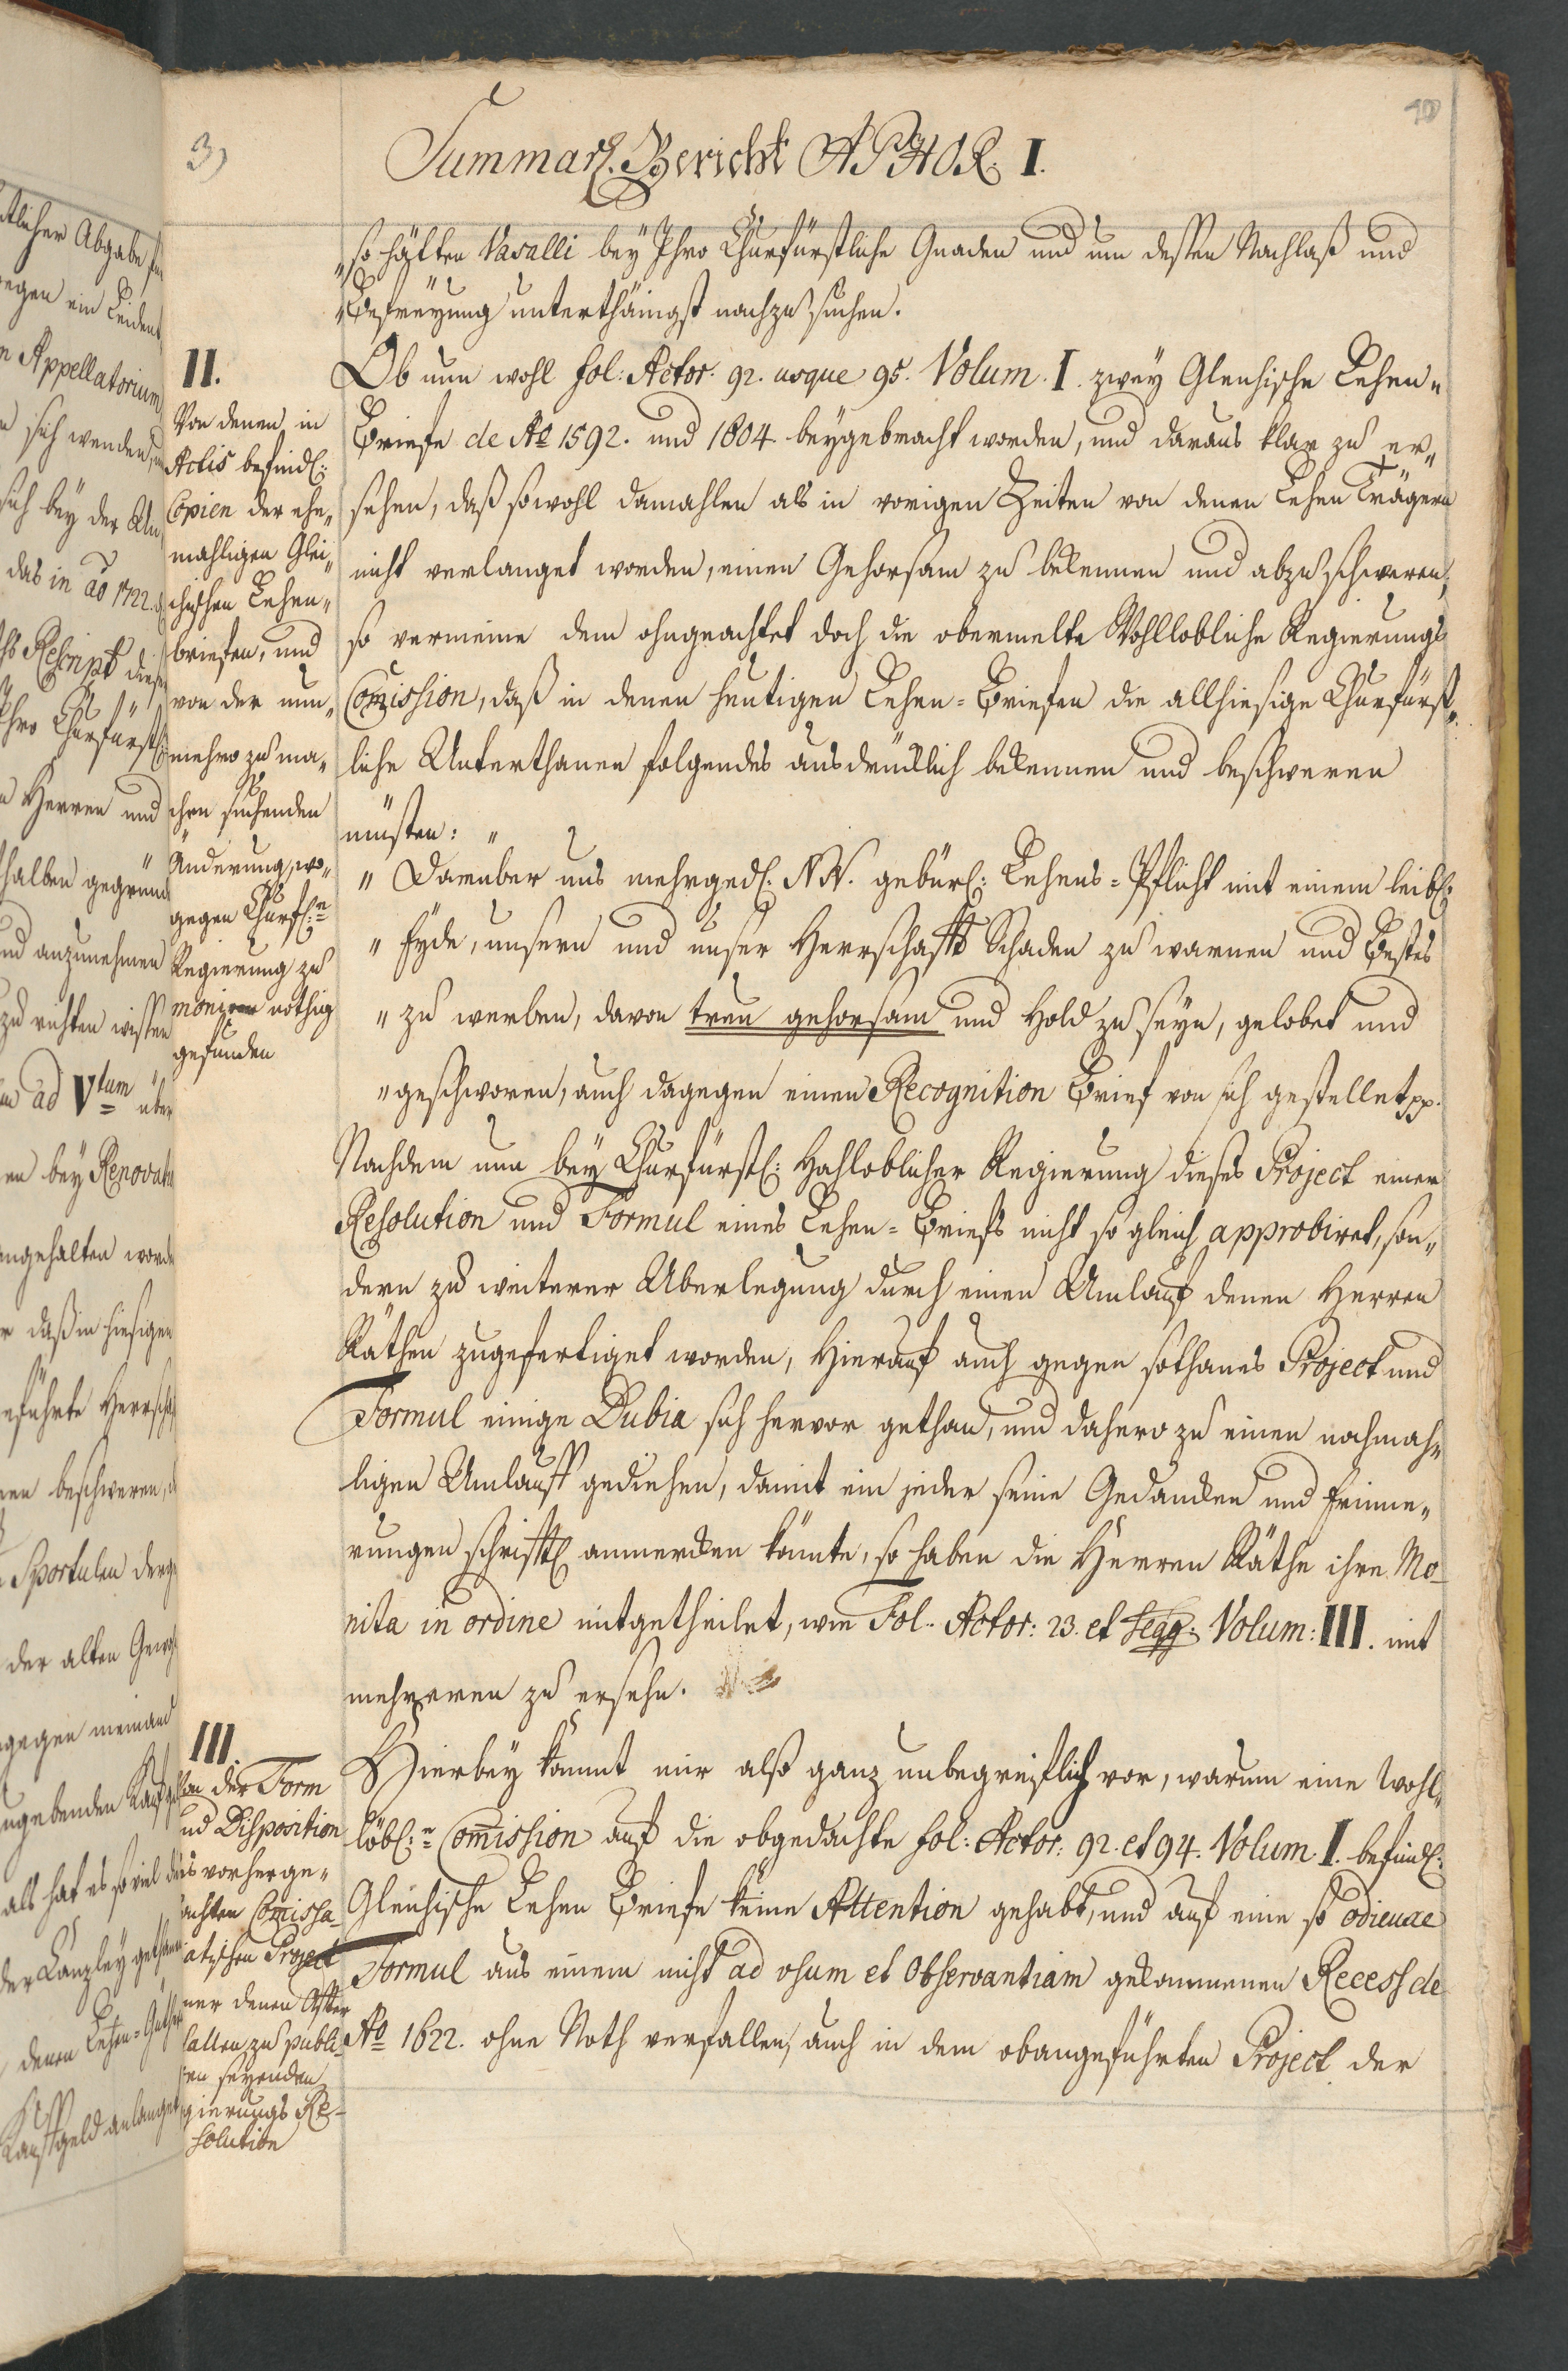 3)
10
Summar. Bericht APHOR. I.
"so hätten Vasalli bey Ihro Churfürstliche Gnaden und um dessen Nachlaß und
"Befreyung unterthänigst nachzusuchen.
II.
Von denen in
Actis befindl:
Copien der ehe„
mahligen Glei„
chischen Lehen„
briefen, und
von der nun„
mehro zu ma„
chen suchenden
Änderung, wo„
gegen Churfl:n
Regierung zu
moniren nöthig
gefunden
Ob nun wohl fol: Actor. 92. usque 95. Volum. I. zwey Gleichische Lehen„
Briefe de Ao 1592. und 1604. beygebracht worden, und daraus klar zu er„
sehen, daß sowohl damahlen als in vorigen Zeiten von denen Lehen Trägern
nicht verlanget worden, einen Gehorsam zu bekennen und abzuschweren,
so vermeine dem ohngeachtet doch die obermelte Wohllobliche Regierungs
Commission, daß in denen heutigen Lehen=Briefen die allhiesige Churfürst„
liche Unterthanen folgendes ausdrücklich bekennen und beschweren
müsten: "
" Darüber uns mehrged. N N. gebürl: Lehens=Pflicht mit einem leibl:
" Eyde, unsern und unser Herrschafft Schaden zu warnen und Bestes
" zu werben, davon treu gehorsam und hold zu seyn, gelobet und
" geschworen, auch dagegen einen Recognition Brief von sich gestellet pp.
Nachdem nun bey Churfürstl: Hochloblicher Regierung dieses Project einer
Resolution und Formul eines Lehen=Briefs nicht so gleich approbiret, son„
dern zu weiterer Uberlegung durch einen Umlauf denen Herren
Räthen zugefertiget worden, hierauf auch gegen sothanes Project und
Formul einige Dubia sich hervor gethan, und dahero zu einen nochmah„
ligen Umlauff gediehen, damit ein jeder seine Gedancken und Erinne„
rungen schrifftl anmercken könnte, so haben die Herren Räthe ihre Mo-
nita in ordine mitgetheilet, wie Fol. Actor: 23. et seqq. Volum: III. mit
mehreren zu ersehn.
III.
Von der Form
und Disposition
des vorherge„
dachten Comissa-
riatischen Project
einer denen After
zu publi-
seyenden
Regierungs Re-
solution
Hierbey kommt mir also ganz unbegreiflich vor, warum eine Wohl„
löbl:e Commission auf die obgedachte fol: Actor: 92. et 94. Volum. I. befindl:
Gleichische Lehen Briefe keine Attention gehabt, und auf eine so odieuse
Formul aus einem nicht ad usum et Observantiam gekommenen Recess de
Ao 1622. ohne Noth verfallen, auch in dem obangeführten Project der